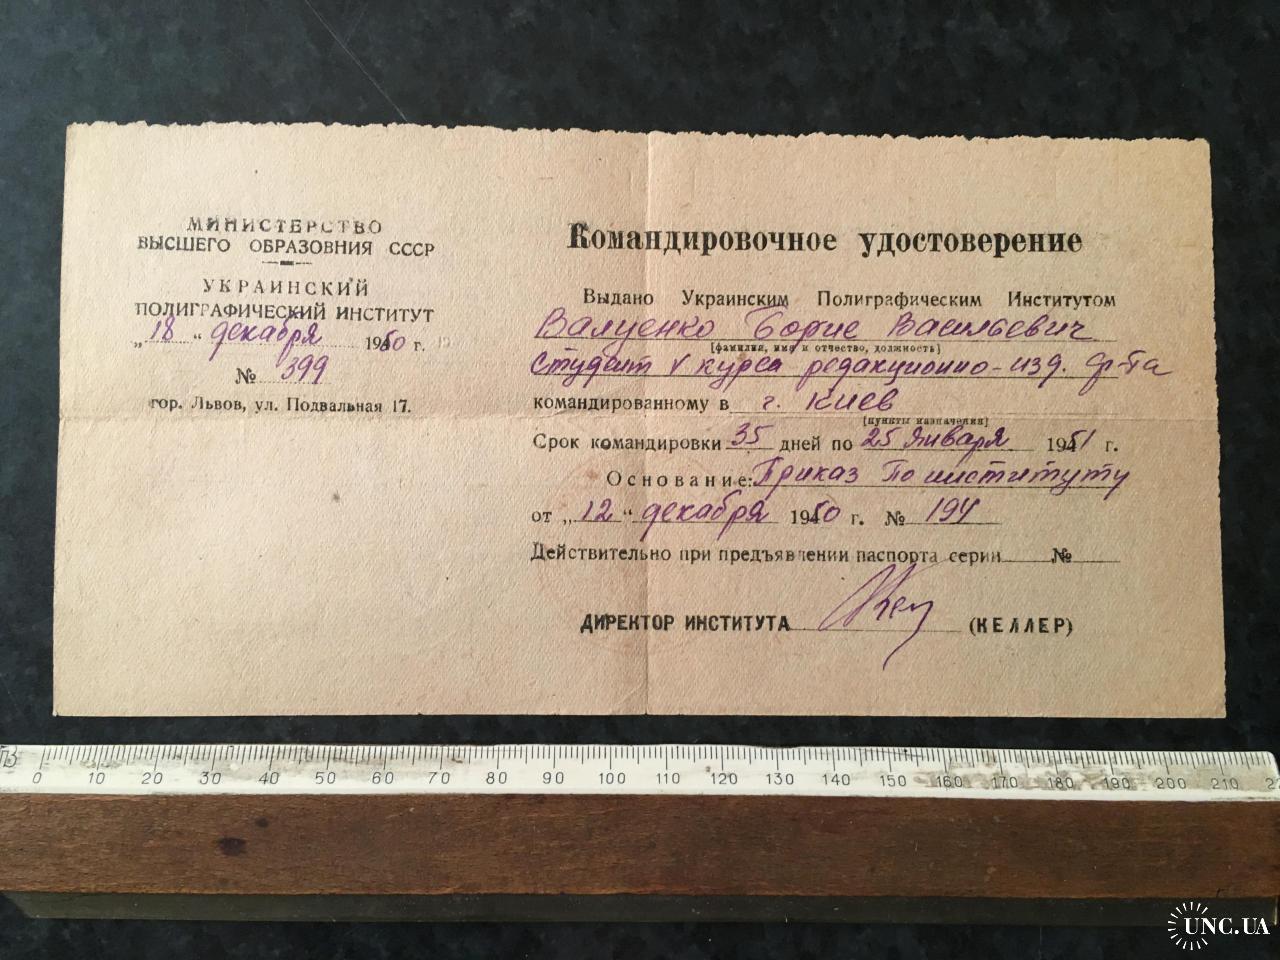 МИНИСТЕРСТВО
ВЫСШЕГО ОБРАЗОВНИЯ СССР
УКРАИНСКИЙ
ПОЛИГРАФИЧЕСКИЙ ИНСТИТУТ
„18“ декабря 1950 г.
№ 399
гор. Львов, ул. Подвальная 17.
Командировочное удостоверение
Выдано Украинским Полиграфическим Институтом
Валуенко Борис Васильевич
(фамилия, имя и отчество, должность)
студент V курса редакционно-изд. ф-та
командированному в г. Киев
(пункты назначения)
Срок командировки 35 дней по 25 января 1951 г.
Основание: Приказ по институту
от „12“ декабря 1950 г. № 194
Действительно при предъявлении паспорта серии №
ДИРЕКТОР ИНСТИТУТА (КЕЛЛЕР)
0 10 20 30 40 50 60 70 80 90 100 110 120 130 140 150 160 170 180 190 200 210
UNC.UA